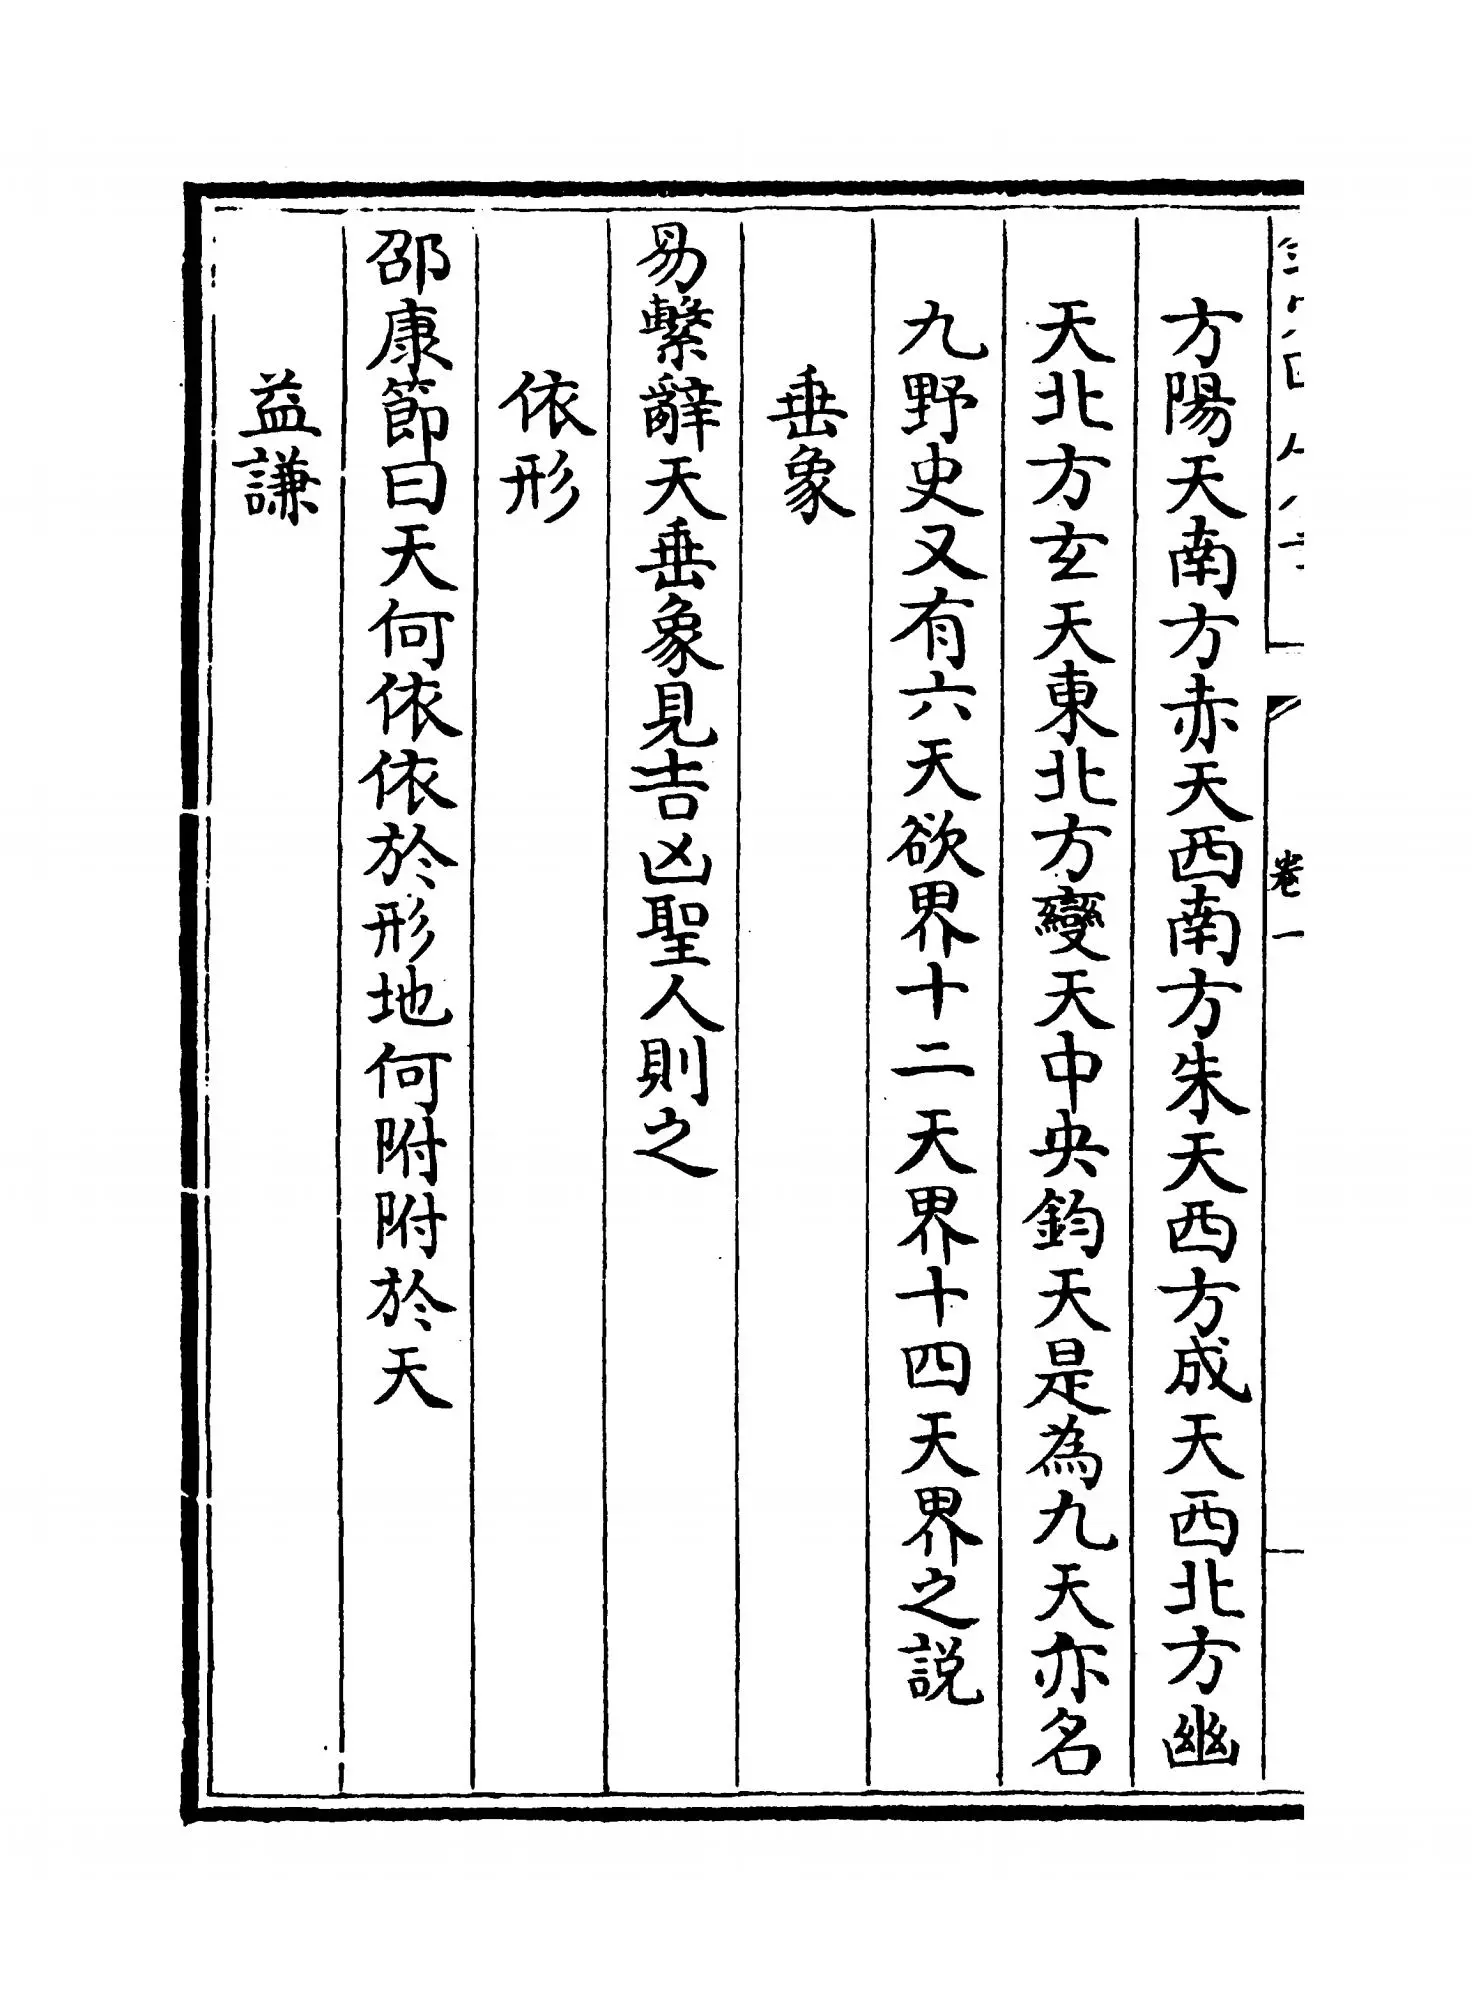 卷一
方陽天南方赤天西南方朱天西方成天西北方幽
天北方玄天東北方變天中央鈞天是為九天亦名
九野史又有六天欲界十二天界十四天界之説
垂象
易繫辭天垂象見吉凶聖人則之
依形
邵康節曰天何依依於形地何附附於天
益謙